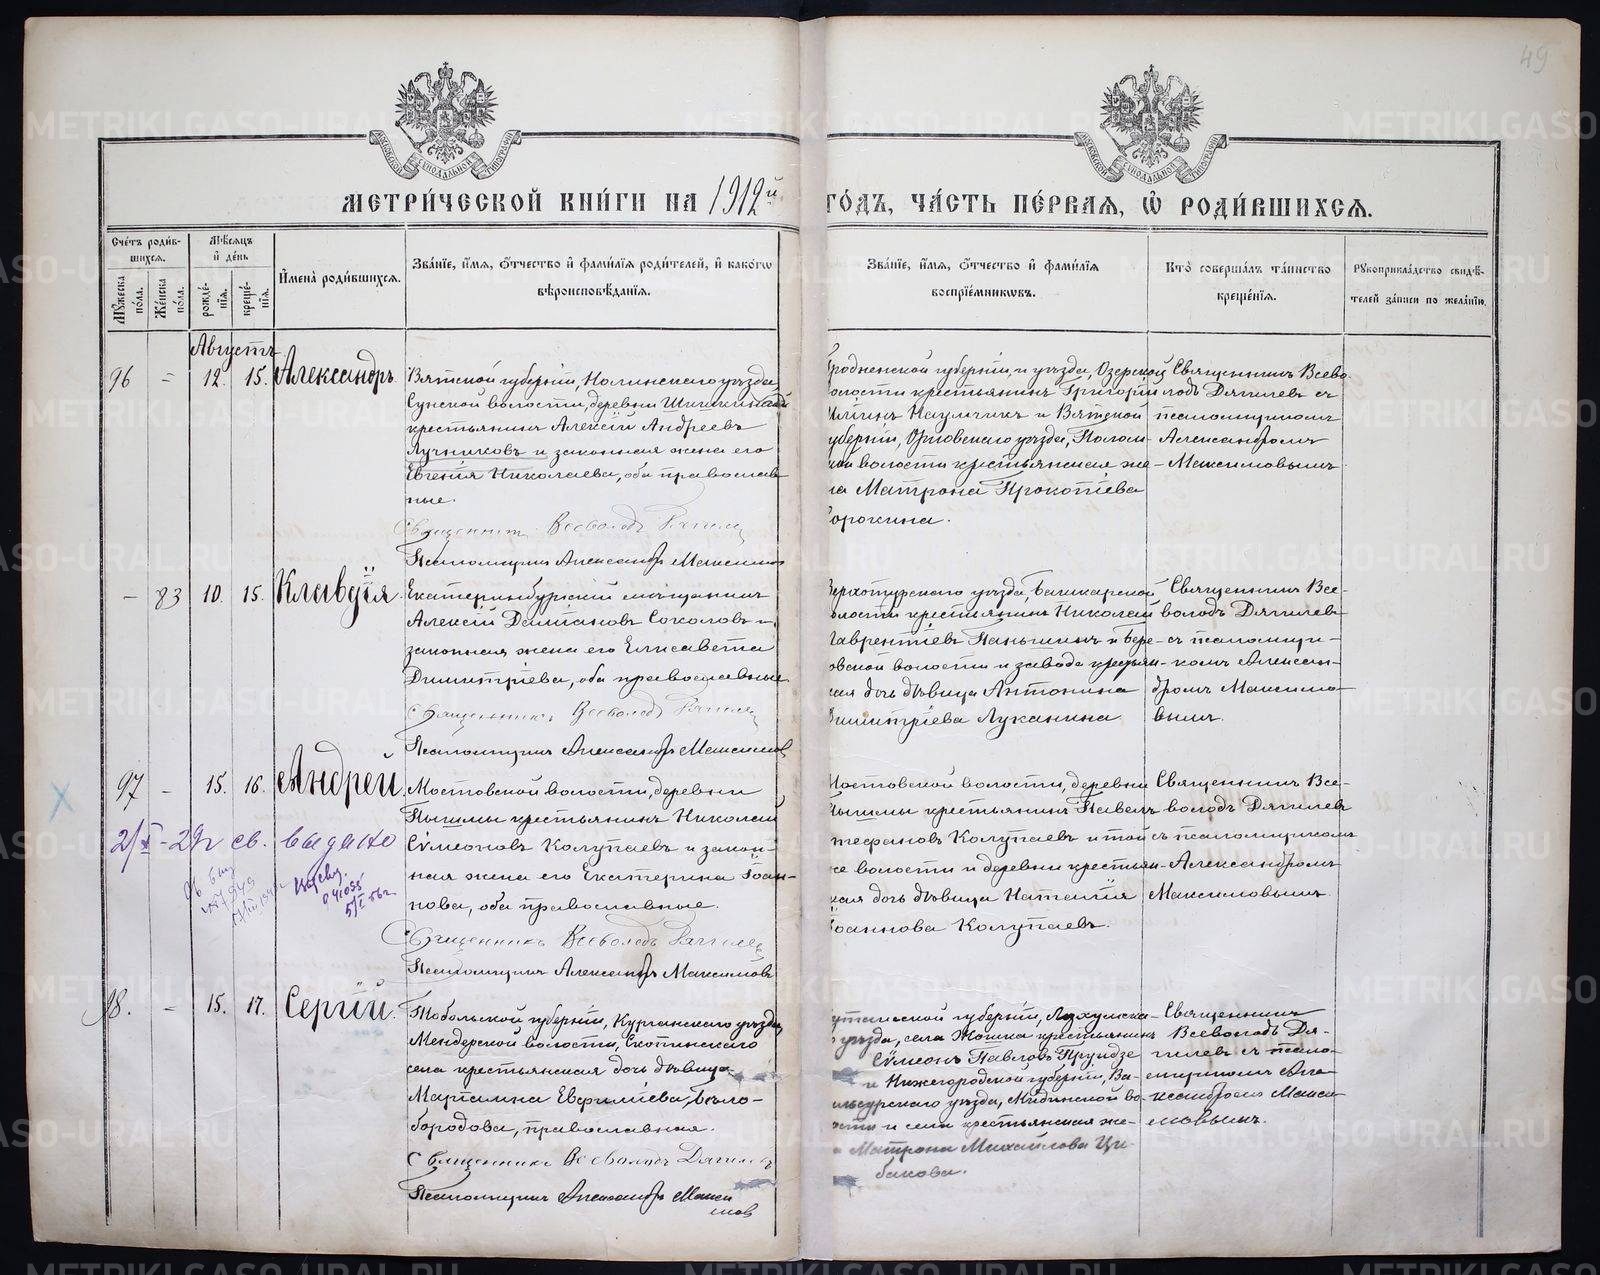 49
МЕТРИ́ЧЕСКОЙ КНИ́ГИ НА 1912й
ГО́ДЪ, ЧА́СТЬ ПЕ́РВАЯ, Ѡ РОДИ́ВШИХСЯ.
Сче́тъ роди́вшихся.
Му́жеска по́ла.
Же́нска по́ла.
Мѣ́сяцъ и де́нь
рожде́нїя.
креще́нїя.
И҆мена̀ роди́вшихся.
Зва́нїе, и҆́мя, ѻ҆́тчество и҆ фами́лїя роди́телей, и҆ како́гѡ
вѣроисповѣ́данїя.
Зва́нїе, и҆́мя, ѻ҆́тчество и҆ фами́лїя
воспрїе́мниковъ.
Кто̀ соверша́лъ та́инство
креще́нїя.
Рукоприкла́дство свидѣ́-
телей за́писи по жела́нїю.
Августъ
96 = 12. 15. Александръ.
Вятской губерніи, Нолинскаго уѣзда,
Сунской волости, деревни
крестьянинъ Алексій Андреевъ
Лучниковъ и законная жена его
Евгенія Николаева, оба православ
ные.
Священникъ Всеволодъ Дягилев
Псаломщикъ Александръ Максимов
Гродненской губерніи и уѣзда, Озерской
волости крестьянинъ Григорій
Наумчикъ и Вятской
губерніи, Орловскаго уѣзда,
волости крестьянская же-
на Матрона Прокопіева
Сорокина.
Священникъ Всево-
лодъ Дягилевъ съ
псаломщикомъ
Александромъ
Максимовымъ.
– 83 10. 15. Клавдія.
Екатеринбургскій мѣщанинъ
Алексій Даміановъ Соколовъ и
законная жена его Елисавета
Димитріева, оба православные
Священникъ Всеволодъ Дягилев
Псаломщикъ Александръ Максимов
Верхотурскаго уѣзда, Башкарской
волости крестьянинъ Николай
Лаврентіевъ Паньшинъ и Бере-
зовской волости и завода крестьян-
ская дочь дѣвица Антонина
Димитріева Луканина
Священникъ Все-
володъ Дягилевъ
съ псаломщи-
комъ Алексан-
дромъ Максимо-
вымъ.
97 – 15. 16. Андрей.
Мостовской волости, деревни
Пышмы крестьянинъ Николай
Сѵмеоновъ Колупаевъ и закон-
ная жена его Екатерина Іоан-
нова, оба православные.
Священникъ Всеволодъ Дягилев
Псаломщикъ Александръ Максимовъ
Мостовской волости, деревни
Пышмы крестьянинъ Павелъ
Стефановъ Колупаевъ и той
же волости и деревни крестьян-
ская дочь дѣвица Наталія
Іоаннова Колупаевъ.
Священникъ Все-
володъ Дягилевъ
съ псаломщикомъ
Александромъ
Максимовымъ
2/X - 29г св. выдано
041055
5/I 56г
98. = 15. 17. Сергій.
Тобольской губерніи, Курганскаго уѣзда,
Мендерской волости,
села крестьянская дочь дѣвица
Маріанна Евфиміева, Бѣло-
бородова, православная.
Священникъ Всеволодъ Дягилевъ
Псаломщикъ Александръ Макси
мов
Кутаисской губерніи, Лечхумска-
го уѣзда, села крестьянинъ
Сѵмеонъ Павловъ
и Нижегородской губерніи, Ва-
сильсурскаго уѣзда, во-
лости и села крестьянская же-
на Матрона Михайлова Ци-
бакова.
Священникъ
Всеволодъ Дя-
гилевъ съ псало-
мщикомъ Але-
ксандромъ Макси-
мовымъ.
METRIKI.GASO-URAL.RU